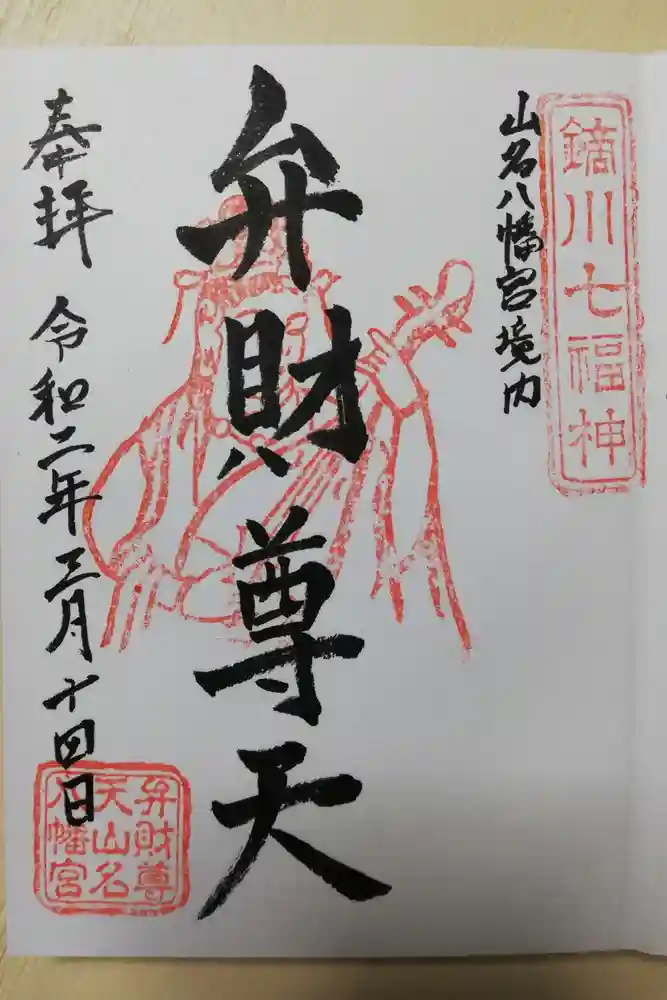 鏑川七福神
山名八幡宮境内
弁財尊天
奉拝
令和二年三月十四日
弁財尊
天山名
八幡宮